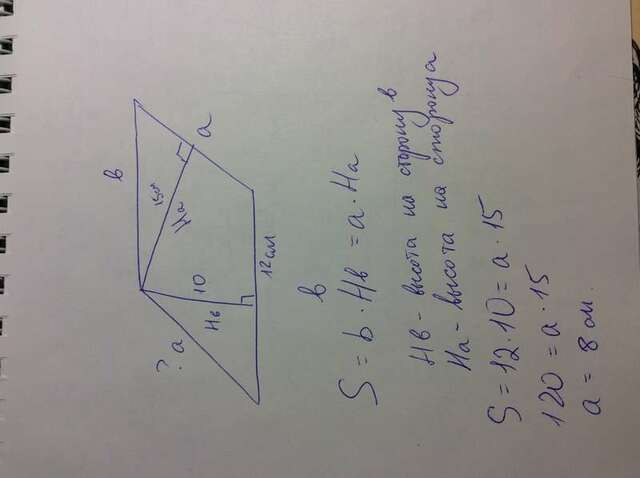 в
a
15см
Ha
10
Hв
? a
12 см
в
S = b · Hв = a · Ha
Hв - высота на сторону в
Ha - высота на сторону a
S = 12 · 10 = a · 15
120 = a · 15
a = 8 см.